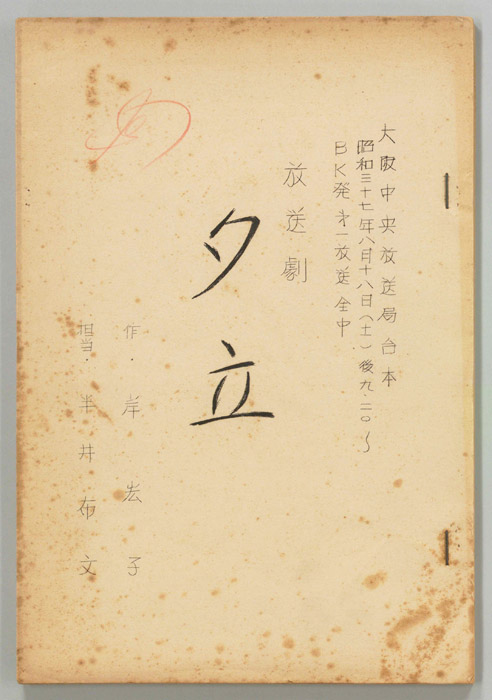 大阪中央放送局台本
昭和三十七年八月十八日(土)後九.二〇~
BK発才一放送全中
放送劇
夕立
作.岸宏子
担当.半井布文